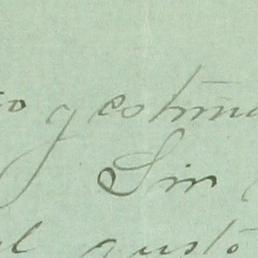 o y estima
Sin
el gusto